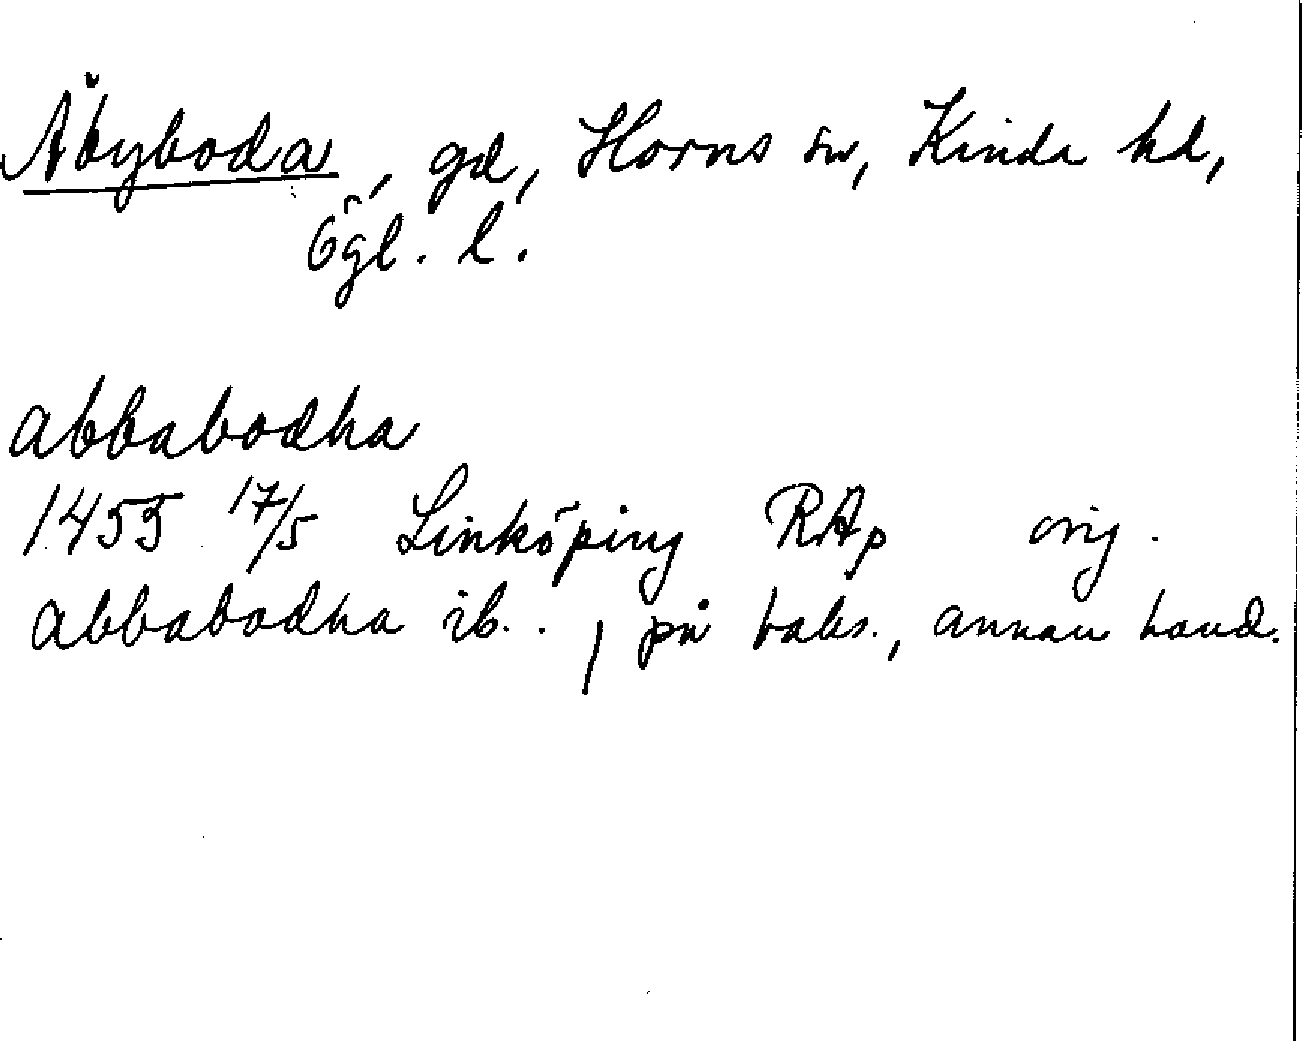 Åbyboda, gd, Horns sn, Kinda hd,
Ögl. l.
abbabodha
1455 17/5 Linköping RAp orig.
abbabodha ib.., på baks., annan hand.